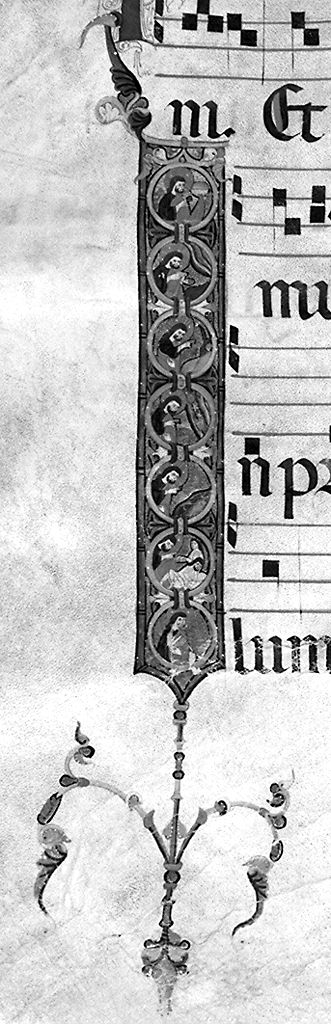 m. Et
mu
n̄pr
lum